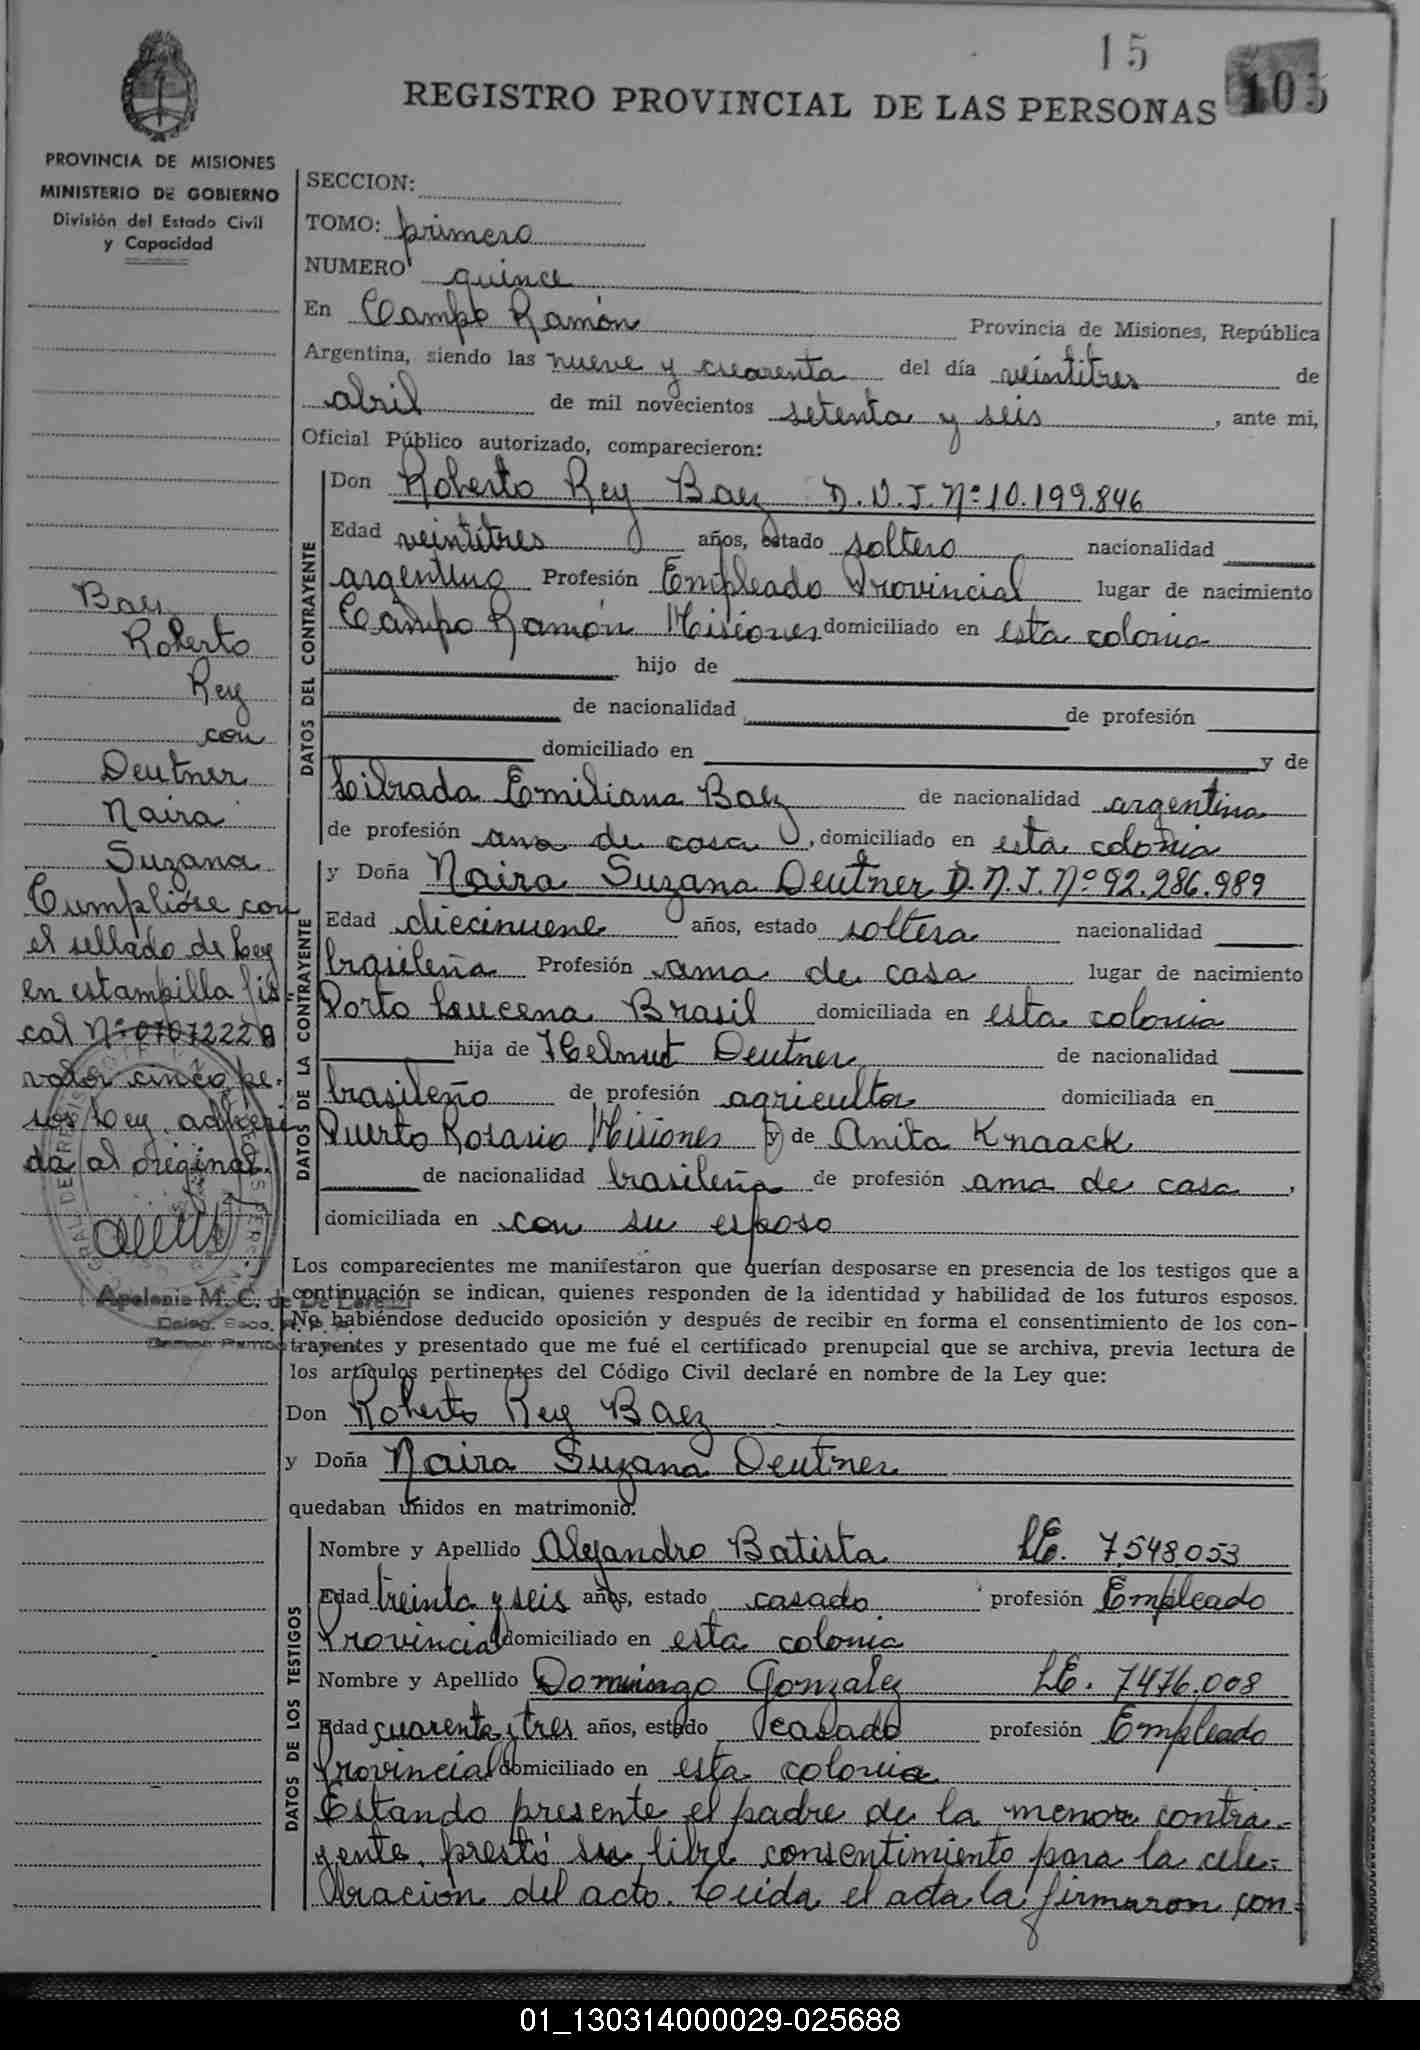 15
105
REGISTRO PROVINCIAL DE LAS PERSONAS
PROVINCIA DE MISIONES
MINISTERIO DE GOBIERNO
División del Estado Civil
y Capacidad
SECCION:
TOMO: primero
NUMERO quince
En Campo Ramón Provincia de Misiones, República
Argentina, siendo las nueve y cuarenta del día veintitres de
abril de mil novecientos setenta y seis, ante mi,
Oficial Público autorizado, comparecieron:
DATOS DEL CONTRAYENTE
Don Roberto Rey Baez D.N.I. Nº 10.199.846
Edad veintitres años, estado soltero nacionalidad
argentino Profesión Empleado Provincial lugar de nacimiento
Campo Ramón Misiones domiciliado en esta colonia
hijo de
de nacionalidad de profesión
domiciliado en y de
Librada Emiliana Baez de nacionalidad argentina
de profesión ama de casa, domiciliado en esta colonia
DATOS DE LA CONTRAYENTE
y Doña Naira Suzana Deutner D.N.I. Nº 92.286.989
Edad diecinueve años, estado soltera nacionalidad
brasileña Profesión ama de casa lugar de nacimiento
Porto Lucena Brasil domiciliada en esta colonia
hija de Helmut Deutner de nacionalidad
brasileño de profesión agricultor domiciliada en
Puerto Rosario Misiones y de Anita Knaack
de nacionalidad brasileña de profesión ama de casa,
domiciliada en con su esposo
Los comparecientes me manifestaron que querían desposarse en presencia de los testigos que a
continuación se indican, quienes responden de la identidad y habilidad de los futuros esposos.
No habiéndose deducido oposición y después de recibir en forma el consentimiento de los con-
trayentes y presentado que me fué el certificado prenupcial que se archiva, previa lectura de
los artículos pertinentes del Código Civil declaré en nombre de la Ley que:
Don Roberto Rey Baez
y Doña Naira Suzana Deutner
quedaban unidos en matrimonio.
DATOS DE LOS TESTIGOS
Nombre y Apellido Alejandro Batista L.E. 7.548.053
Edad treinta y seis años, estado casado profesión Empleado
Provincial domiciliado en esta colonia
Nombre y Apellido Domingo Gonzalez L.E. 7476.008
Edad cuarenta y tres años, estado casado profesión Empleado
Provincial domiciliado en esta colonia
Estando presente el padre de la menor contra-
yente, prestó su libre consentimiento para la cele-
bración del acto. Leida el acta la firmaron con-
Baez
Roberto
Rey
con
Deutner
Naira
Suzana
Cumplióse con
el sellado de Ley
en estampilla fis
cal Nº 0707222
valor cinco pe-
sos Ley, adheri
da al original.
Apolonia M. C. de De Lorenzi
01_130314000029-025688